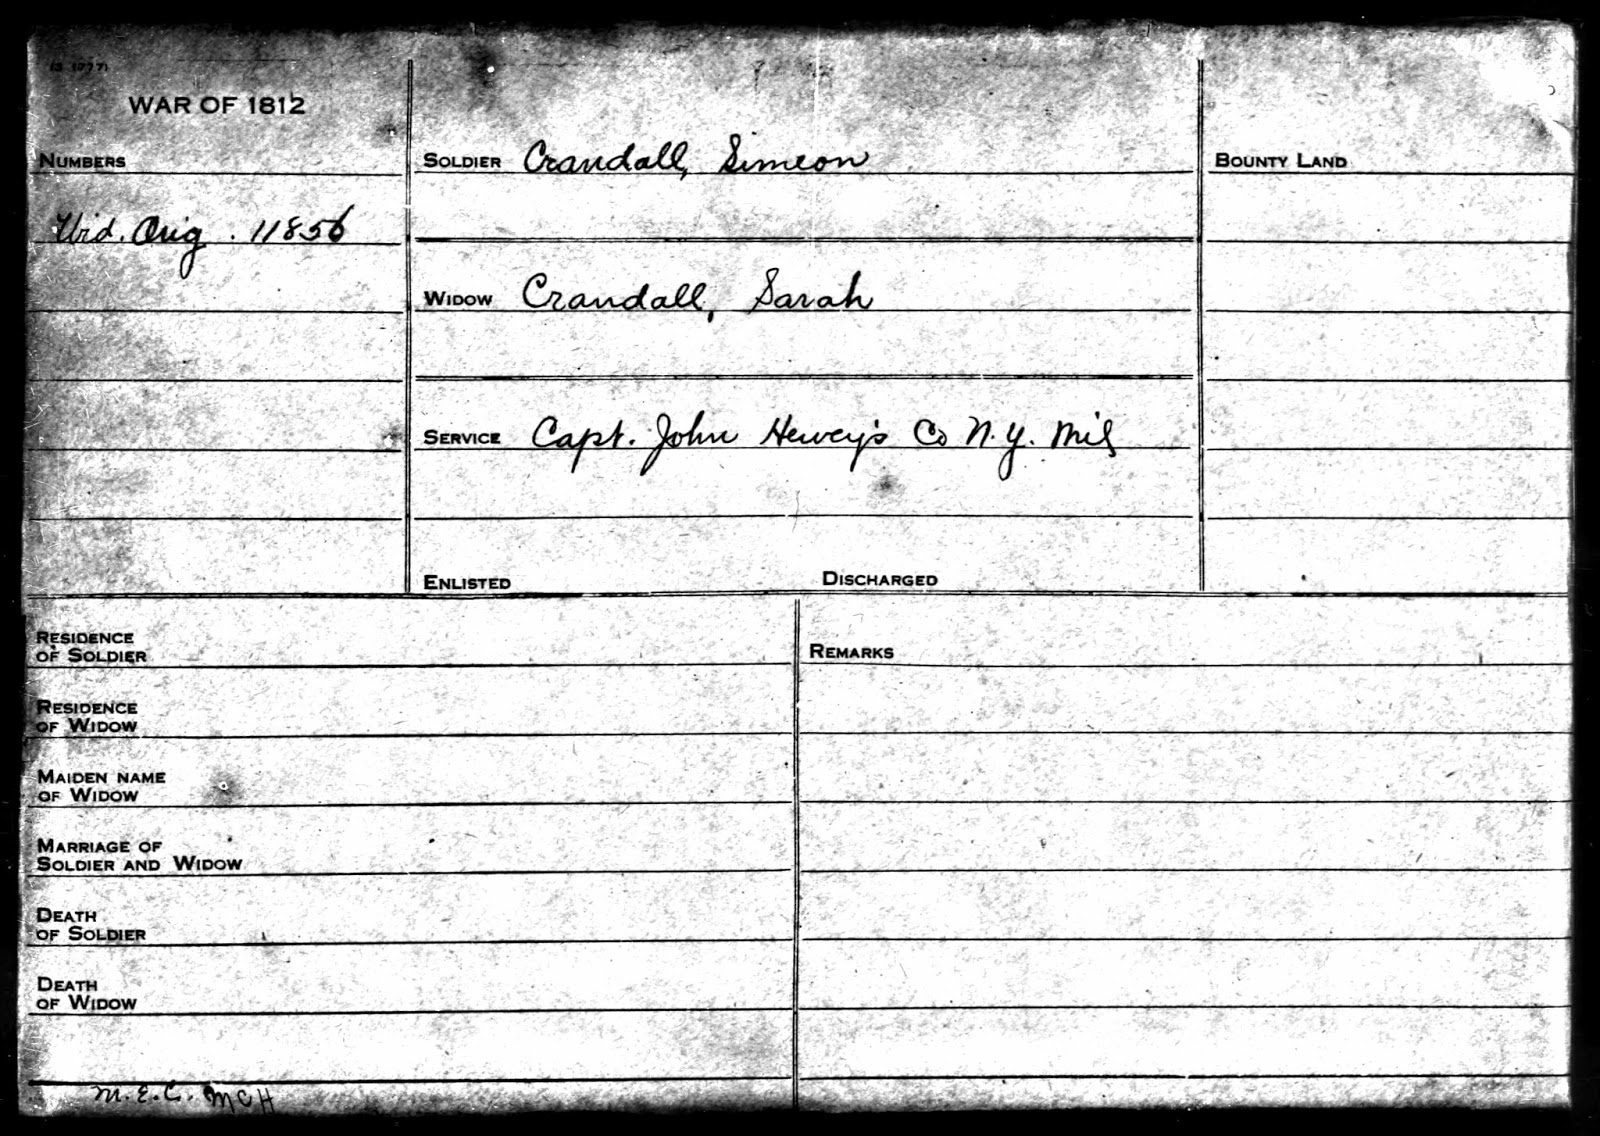 WAR OF 1812
NUMBERS
Wid. Orig. 11856
SOLDIER Crandall, Simeon
WIDOW Crandall, Sarah
SERVICE Capt. John Hervey's Co N.Y. Mil
ENLISTED DISCHARGED
BOUNTY LAND
RESIDENCE
OF SOLDIER
RESIDENCE
OF WIDOW
MAIDEN NAME
OF WIDOW
MARRIAGE OF
SOLDIER AND WIDOW
DEATH
OF SOLDIER
DEATH
OF WIDOW
REMARKS
M.E.C. MCH